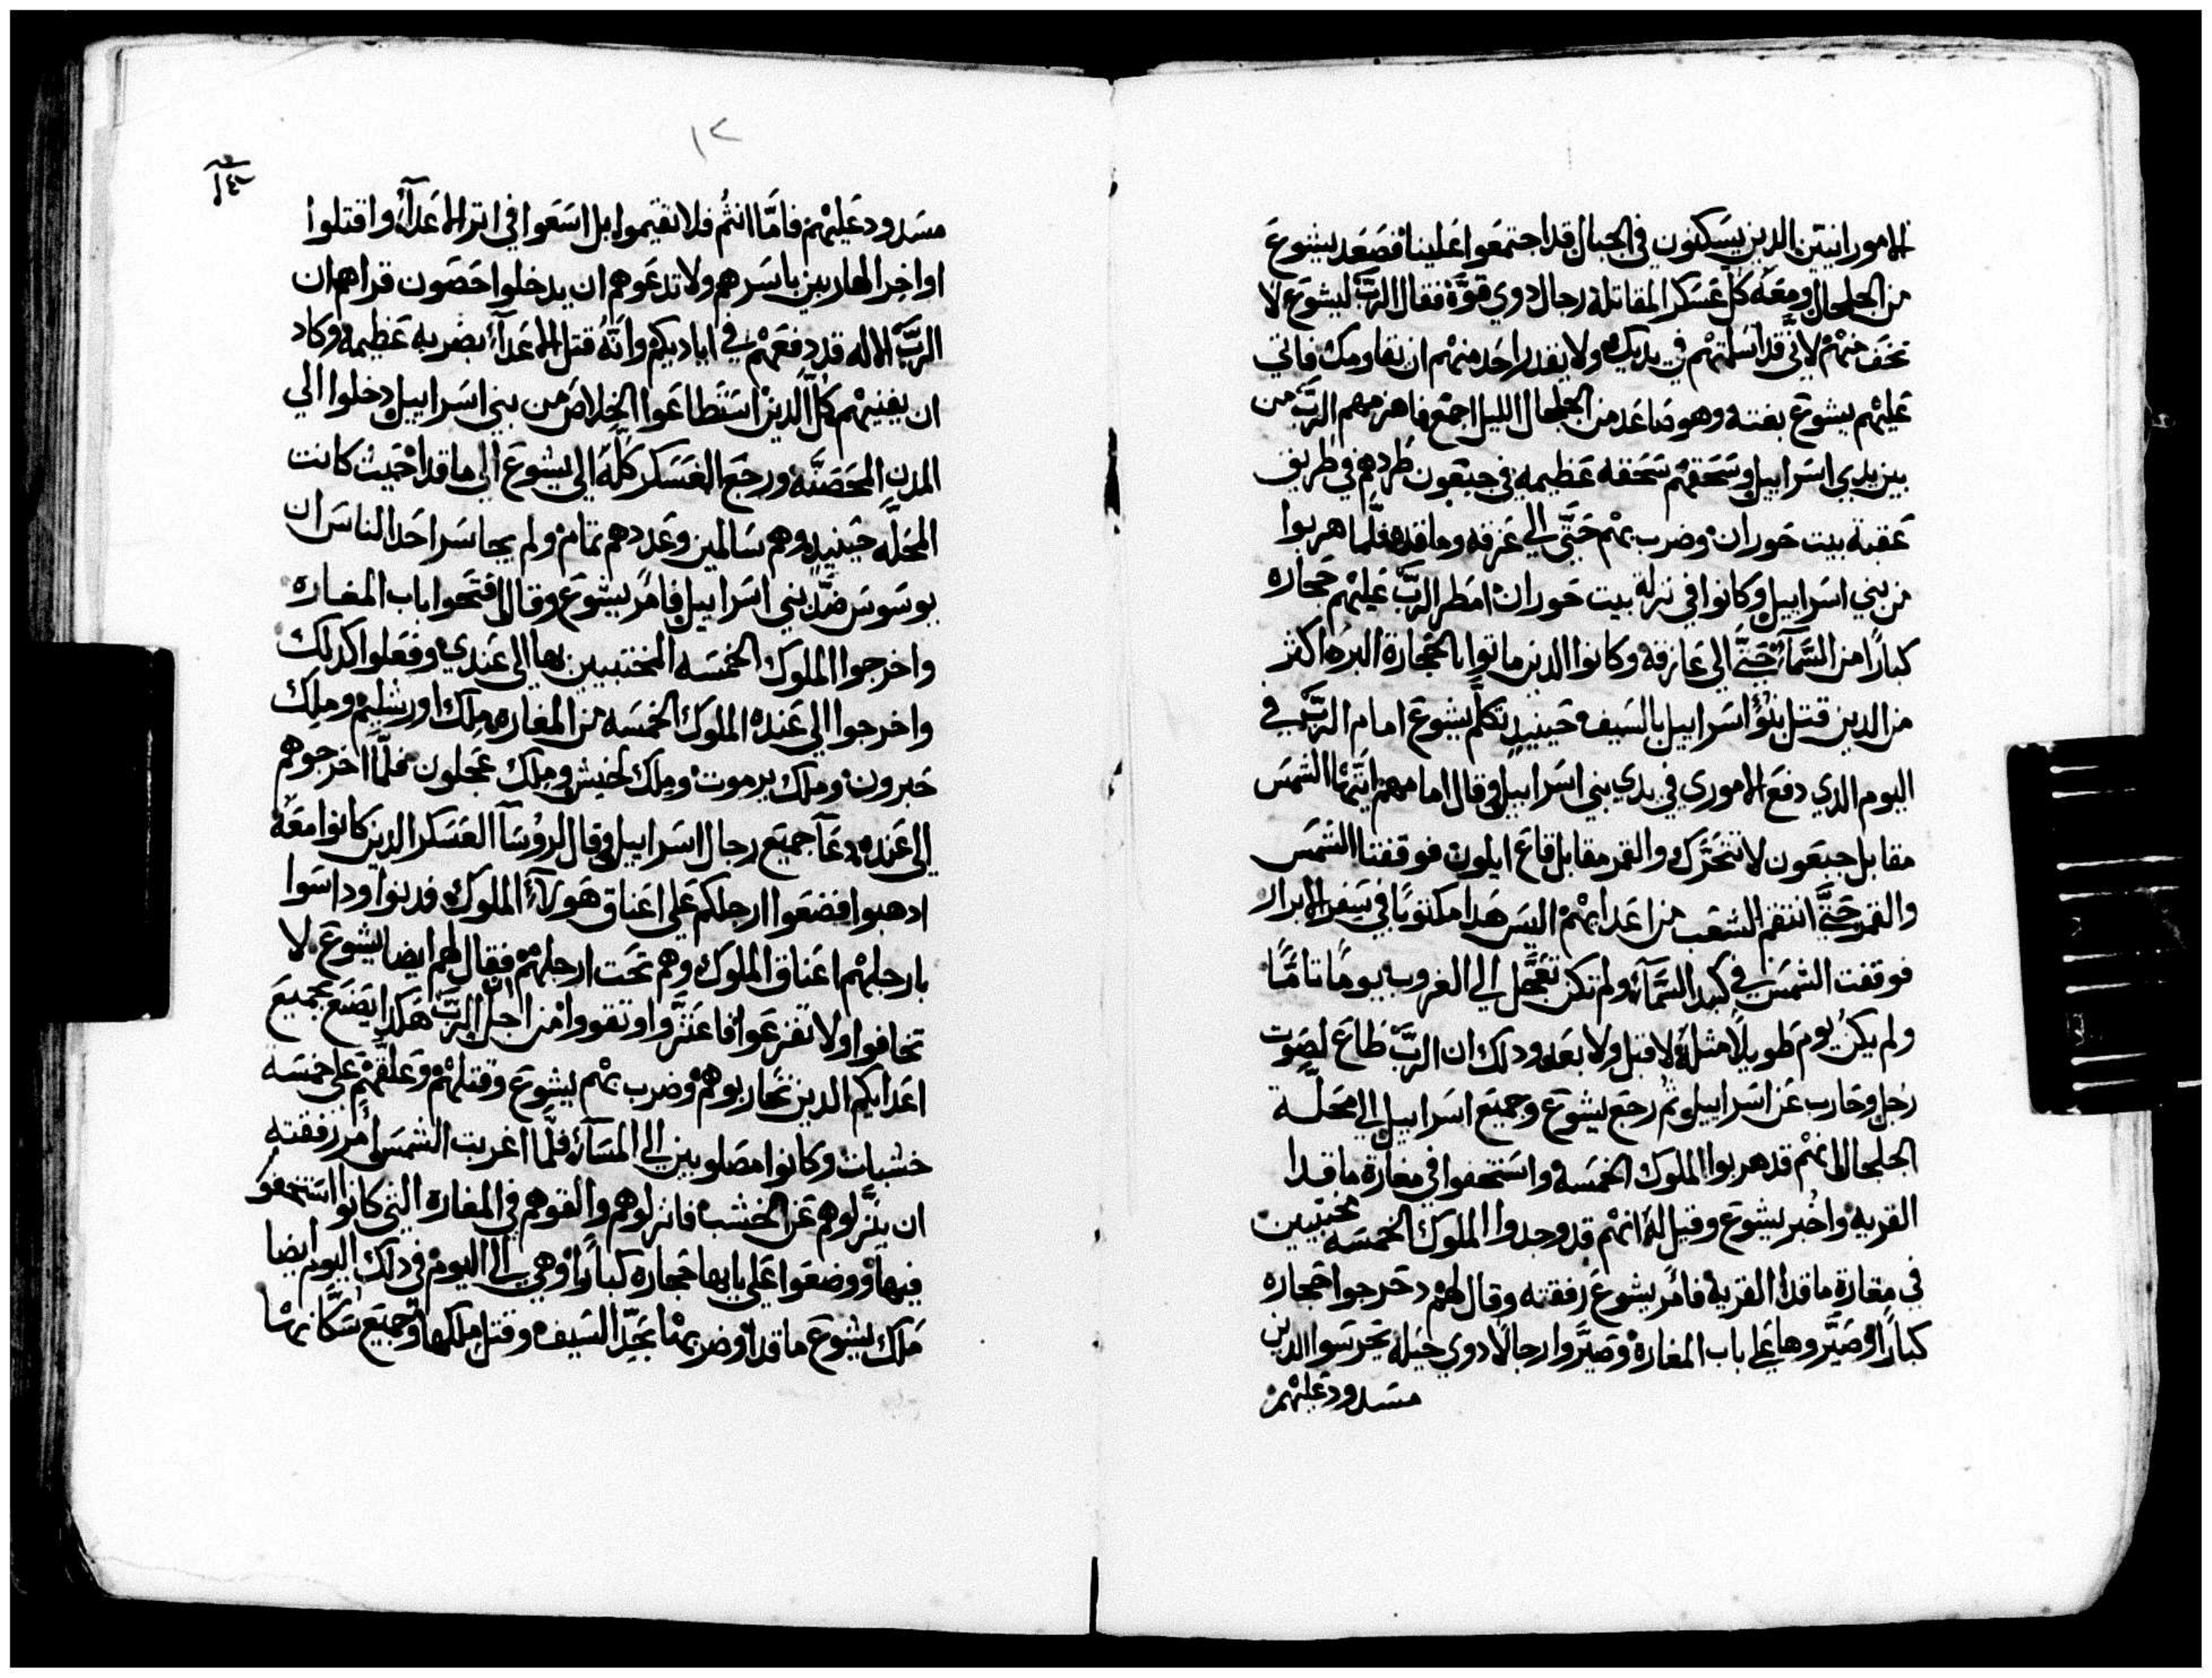 الامورانيين الدين يسكنون في الجبال قد اجتمعوا علينا فصعد يشوع
من الجلجال ومعه كل عسكر المقاتلة رجال دوي قوة فقال الرب ليشوع لا
تخف منهم لاني قد اسلمتهم في يديك ولا يقدر احد منهم ان يقاومك فاتي
عليهم يشوع بغتة وهو صاعد من الجلجال الليل اجمع فاهزمهم الرب من
بين يدي اسراييل وسحقهم سحقه عظيمه في جبعون طردهم في طريق
عقبة بيت حوران وضرب بهم حتي الي عزقه وماقده فلما هربوا
من بني اسراييل وكانوا في نزلة بيت حوران امطر الرب عليهم حجاره
كبارا من السمآء حتي الي عازقه وكانوا الدين ماتوا بالحجارة البرد اكثر
من الدين قتل بنوا اسراييل بالسيف حينيد تكلم يشوع امام الرب في
اليوم الدي دفع الاموري في يدي بني اسراييل وقال امامهم ايتها الشمس
مقابل جبعون لا تتحرك والقمر مقابل قاع ايلون فوقفتا الشمس
والقمر حتي انتقم الشعب من اعدايهم اليس هدا مكتوبا في سفر الابرار
فوقفت الشمس في كبد السمآء ولم تكن تعجل الي الغروب يوما تاما
ولم يكن يوم طويلا مثله لا قبل ولا بعد ودلك ان الرب طاع لصوت
رجل وحارب عن اسراييل ثم رجع يشوع وجميع اسراييل الي محلة
الجلجال لانهم قد هربوا الملوك الخمسه واستخفوا في مغارة ماقدا
القريه واخبر يشوع وقيل له انهم قد وجدوا الملوك الخمسه مختبيين
في مغارة ماقدا القرية فامر يشوع رفقته وقال لهم دحرجوا حجاره
كبارا وصيروها علي باب المغارة وصيروا رجالا دوي حيله يحرسوا الدين
مسدود عليهم
١٢
مسدود عليهم فاما انتم فلا تقيموا بل اسعوا في اتر الاعدآء واقتلوا
اواخر الهاربين باسرهم ولا تدعوهم ان يدخلوا حصون قراهم ان
الرب الاله قد دفعهم في اياديكم وانه قتل الاعدآء بضربه عظيمة وكاد
ان يفنيهم كل الدين استطاعوا الخلاص من بني اسراييل دخلوا الي
المدن المحصنه ورجع العسكر كله الي يشوع الي ماقدا حيث كانت
المحله حينيد وهم سالمين وعددهم تمام ولم يجاسر احد الناس ان
يوسوس ضد بني اسراييل فامر يشوع وقال افتحوا باب المغاره
واخرجوا الملوك الخمسه المختبيين بها الي عندي وفعلوا كدلك
واخرجوا الي عنده الملوك الخمسه من المغاره ملك اورشليم وملك
حبرون وملك يرموت وملك لخيش وملك عجلون فلما اخرجوهم
الي عنده دعآ جميع رجال اسراييل وقال لروسآ العسكر الدين كانوا معه
ادهبوا فضعوا ارجلكم علي اعناق هولآء الملوك فدنوا وداسوا
بارجلهم اعناق الملوك وهم تحت ارجلهم فقال لهم ايضا يشوع لا
تخافوا ولا تفزعوا فاعتزوا وتقووا من اجل ان الرب هكدا يصنع بجميع
اعدايكم الدين تحاربوهم وضرب بهم يشوع وقتلهم وعلقهم علي خمسه
خشبات وكانوا مصلوبين الي المسآء فلما اغربت الشمس امر رفقته
ان ينزلوهم عن الخشب فانزلوهم والقوهم في المغاره التي كانوا استخفو
فيها ووضعوا علي بابها حجاره كبارا وهي الي اليوم في دلك اليوم ايضا
ملك يشوع ماقدا وضربها بحد السيف وقتل ملكها وجميع سكانها